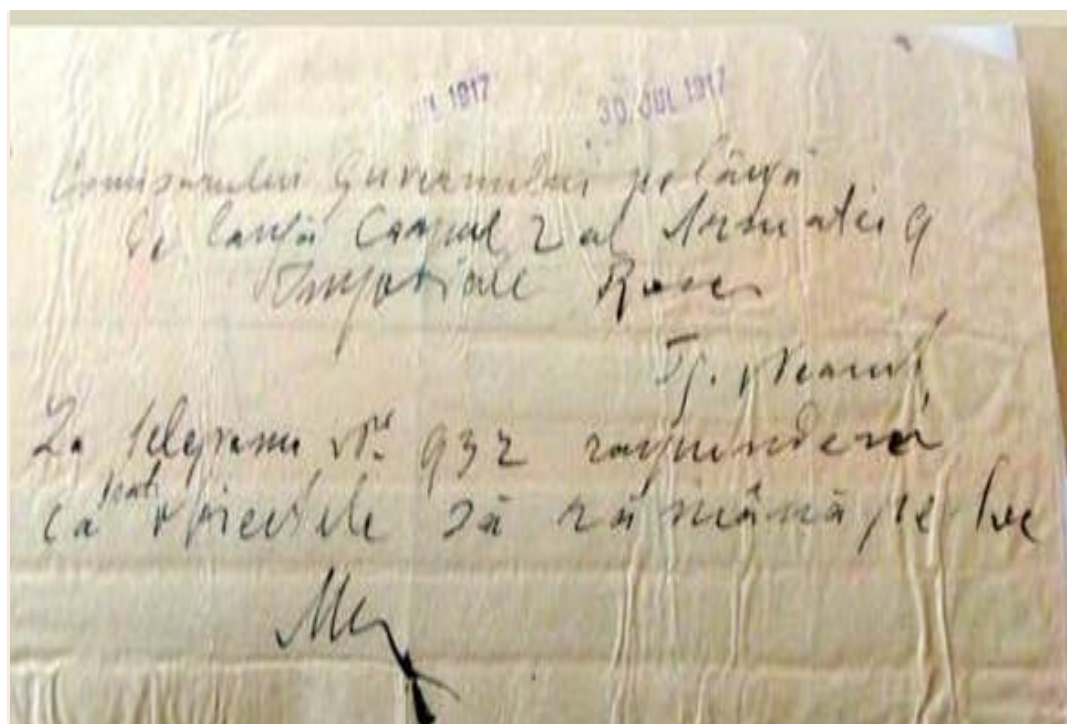 JUL 1917 30. JUL 1917
Comisarului Guvernului pe lângă
Pe langă Corpul 2 al Armatei 9
Imperiale Ruse
Tg. Neamț
La telegrama Nr. 932 raspunderă
ca toate obiectele să rămână pe loc